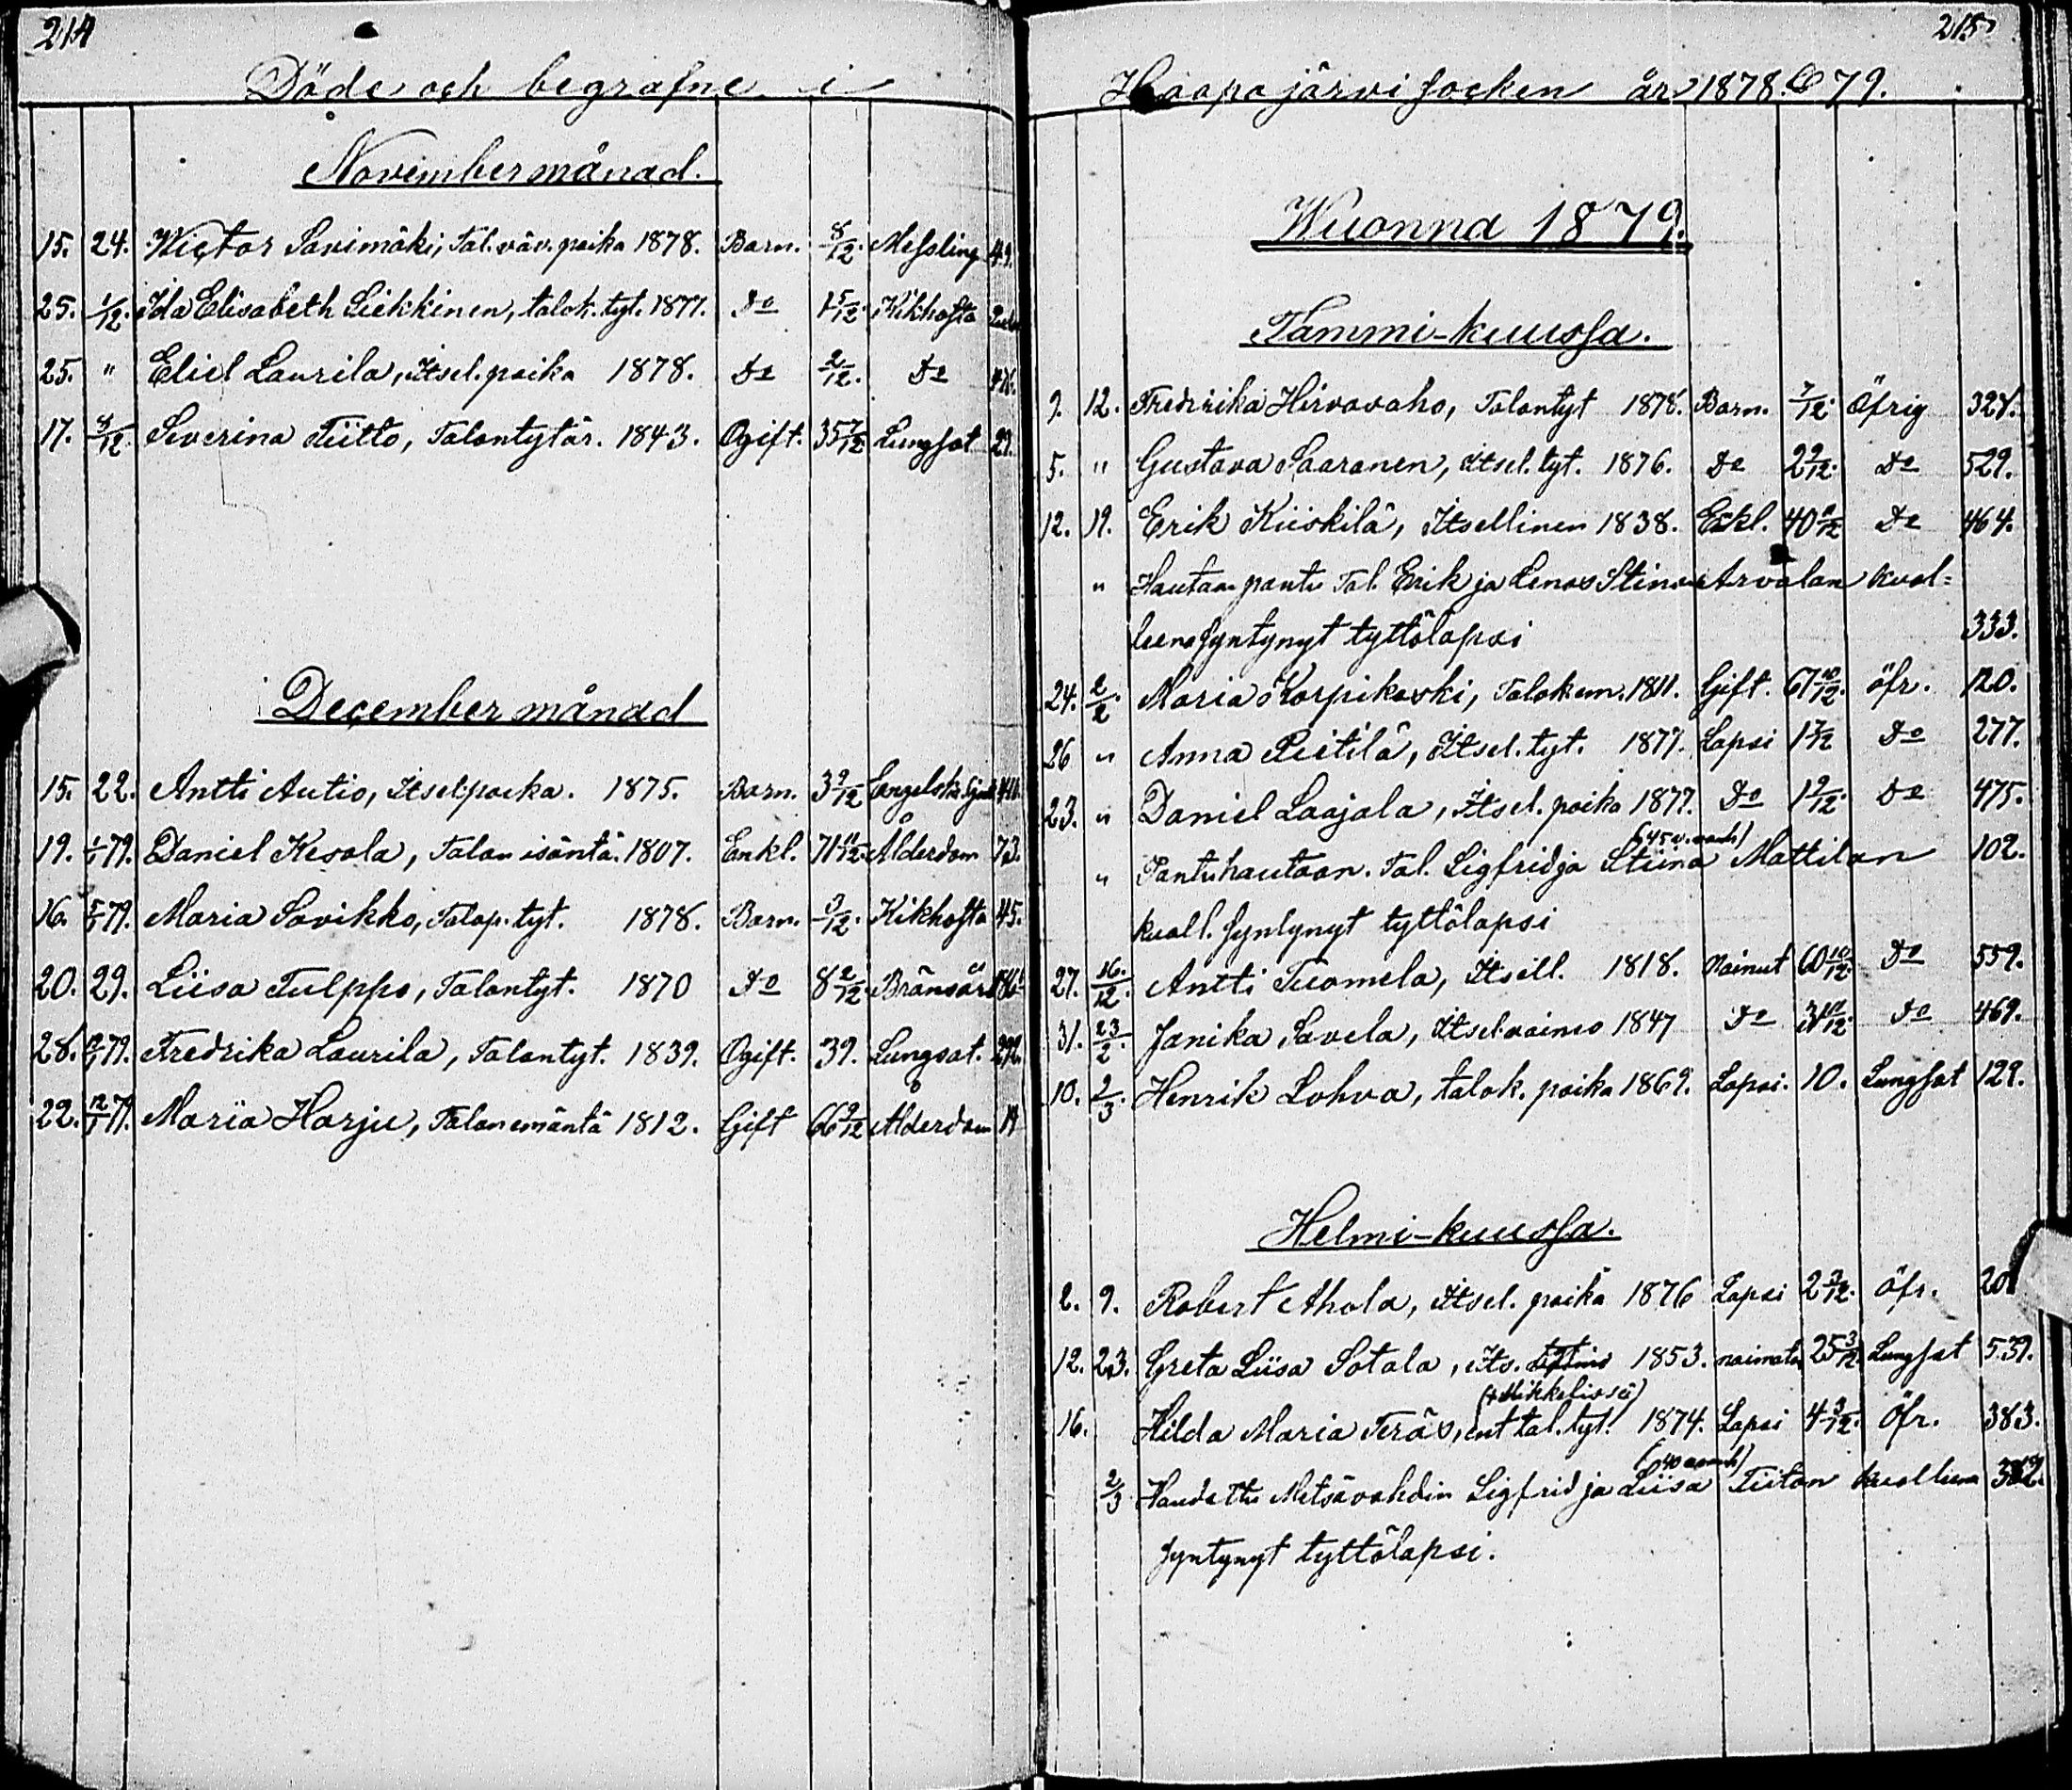 214
Döde och begrafne i
November månad.
15. 24. Wictor Savimäki, Tal. väv. poika 1878. Barn. 8/12. Messling 49.
25. 1/12. Ida Elisabeth Liekkinen, talok. tyt. 1877. Do 1 5/12. Kikhosta
25. " Eliel Laurila, Itsel. poika 1878. Do 2/12. Do
17. 8/12 Severina Tiitto, Talontytär. 1843. Ogift. 35 7/12 Lungsot 29.
December månad
15. 22. Antti Autio, Itsel. poika. 1875. Barn. 3 9/12 Engelska sj.
19. 1/1 79. Daniel Kesola, Talon isäntä. 1807. Enkl. 71 11/12. Ålderdom 73.
16. 5/1 79. Maria Savikko, Talop. tyt. 1878. Barn. 9/12. Kikhosta 45.
20. 29. Liisa Tulppo, Talontyt. 1870 Do 8 2/12 Brännsår
28. 12/1 79. Fredrika Laurila, Talontyt. 1839. Ogift. 39. Lungsot. 292.
22. 12/1 79. Maria Harju, Talon emäntä 1812. Gift 66 9/12 Ålderdom
215
Haapajärvi socken år 1878. & 79.
Wuonna 1879.
Tammi-kuussa.
9. 12. Fredrika Hirvavaho, Talontyt 1878. Barn. 7/12. Öfrig 328.
5. " Gustava Saaranen, itsel. tyt. 1876. Do 2 9/12. Do 529.
12. 19. Erik Kiiskilä, Itsellinen 1838. Enkl. 40 /12 Do 464.
" Hautaan pantu Tal. Erik ja Lenas Stina Arvolan kuol=
leena syntynyt tyttölapsi 333.
24. 2/2. Maria Korpikoski, Talok em. 1811. Gift. 67 10/12. öfr. 120.
26 " Anna Pietilä, Itsel. tyt. 1877. Lapsi 1 7/12 Do 277.
23. " Daniel Laajala, Itsel. poika 1877. Do 1 9/12. Do 475.
(45 v. vanh)
" Pantu hautaan. Tal. Sigfrid ja Stiina Mattilan 102.
kuoll. syntynyt tyttölapsi
27. 16./12. Antti Tuomela, Itsell. 1818. Nainut 60 10/12. Do 559.
31. 23/2. Janika Savela, Itsel. vaimo 1847 Do 31 10/12. Do 469.
10. 2/3. Henrik Lohva, talok. poika 1869. Lapsi. 10. Lungsot 129.
Helmi-kuussa.
2. 9. Robert Ahola, itsel. poika 1876 Lapsi 2 3/12. öfr. 20
12. 23. Greta Liisa Sotala, its. 1853. naimatoin 25 3/12 Lungsot 539.
(+ Mikkelissä)
16. Hilda Maria Teräs, ent tal. tyt. 1874. Lapsi 4 3/12. Öfr. 383.
(40 v. vanh)
2/3 Haudattu Metsävahdin Sigfrid ja Liisa Tiiton kuolleena
syntynyt tyttölapsi.